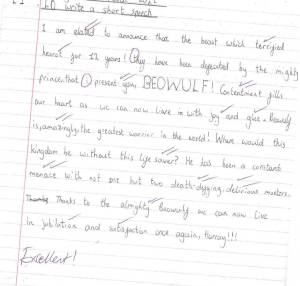 LO Write a short speech
I am elated to announce that the beast which terrified
heorot for 12 years! they have been defeated by the mighty
prince, that I present you, BEOWULF! Contentment fills
our heart as we can now live in with joy and glee. Beowulf
is, amazingly, the greatest warrior in the world! Where would this
kingdom be without this life saver? He has been a constant
menace with not one but two death-defying, delirious monsters.
Thanks to the almighty Beowulf, we can now live
in jubilation and satisfaction once again, Hurray!!!
Excellent!